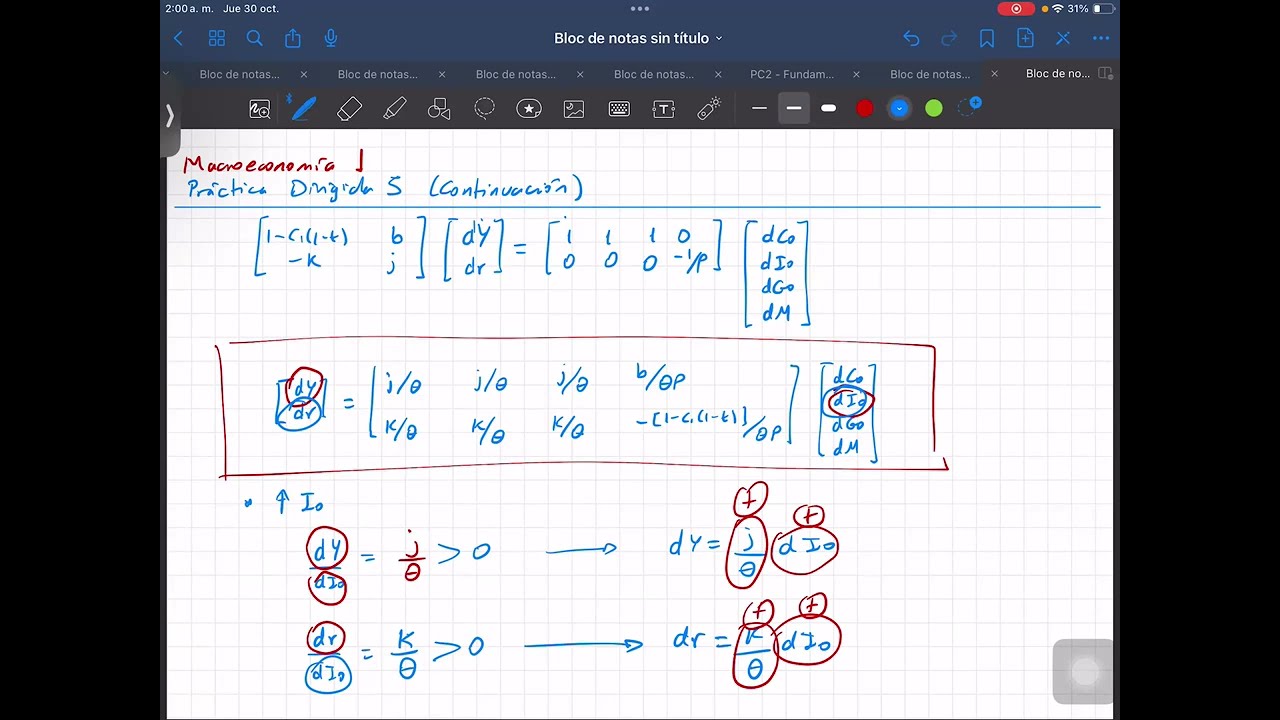 2:00 a. m. Jue 30 oct.
31%
Bloc de notas sin título
Bloc de notas...
Bloc de notas...
Bloc de notas...
Bloc de notas...
PC2 - Fundam...
Bloc de notas...
Bloc de no...
Macroeconomía 1
Práctica Dirigida 5 (Continuación)
[1-C₁(1-t) b] [dY] = [1 1 1 0] [dC₀]
[-k j] [dr] [0 0 0 -1/P] [dI₀]
[dG₀]
[dM]
[dY] = [j/θ j/θ j/θ b/θP] [dC₀]
[dr] [k/θ k/θ k/θ -[1-C₁(1-t)]/θP] [dI₀]
[dG₀]
[dM]
• ↑ I₀
+ +
dY/dI₀ = j/θ > 0 → dY = j/θ dI₀
+ +
dr/dI₀ = k/θ > 0 → dr = k/θ dI₀